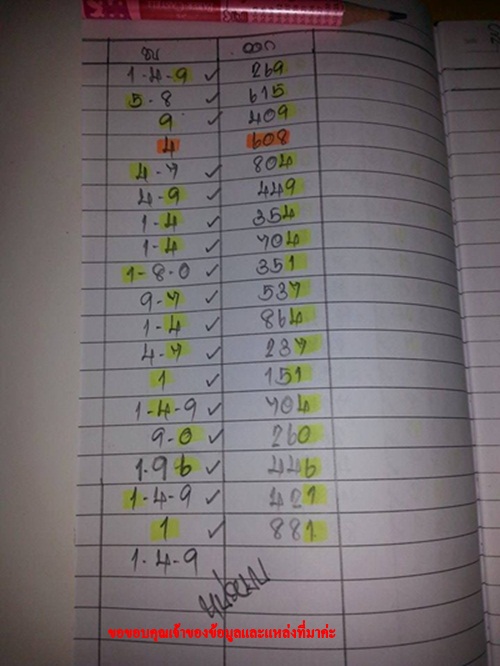 ออก
1-4-9 ✓ 269
5-8 ✓ 615
9 ✓ 409
4 608
4-7 ✓ 804
4-9 ✓ 449
1-4 ✓ 354
1-4 ✓ 704
1-8-0 ✓ 351
9-7 ✓ 537
1-4 ✓ 864
4-7 ✓ 237
1 ✓ 151
1-4-9 ✓ 704
9-0 ✓ 260
1-96 ✓ 446
1-4-9 ✓ 421
1 ✓ 881
1-4-9
ขอขอบคุณเจ้าของข้อมูลและแหล่งที่มาค่ะ